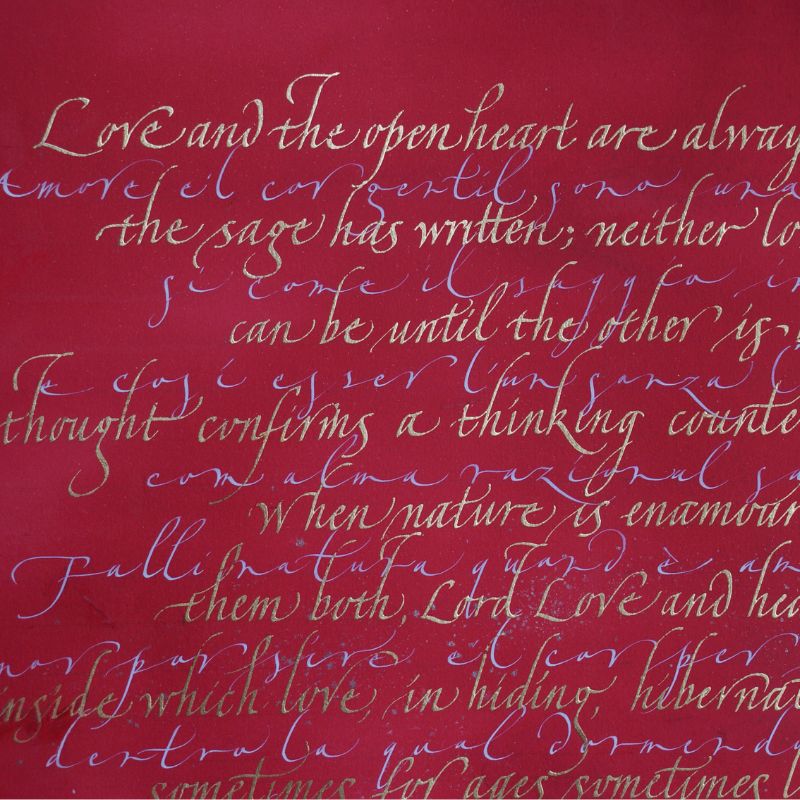 Love and the open heart are alway
Amore e'l cor gentil sono una
the sage has written; neither lo
si come il saggio in
can be until the other is
e cosi esser l'un sanza l
thought confirms a thinking counte
com alma razional sa
When nature is enamour
Falli natura quand è am
them both, Lord Love and hea
mor por sire e'l cor per
inside which love, in hiding, hibernat
dentro la qual dormendo
sometimes for ages sometimes